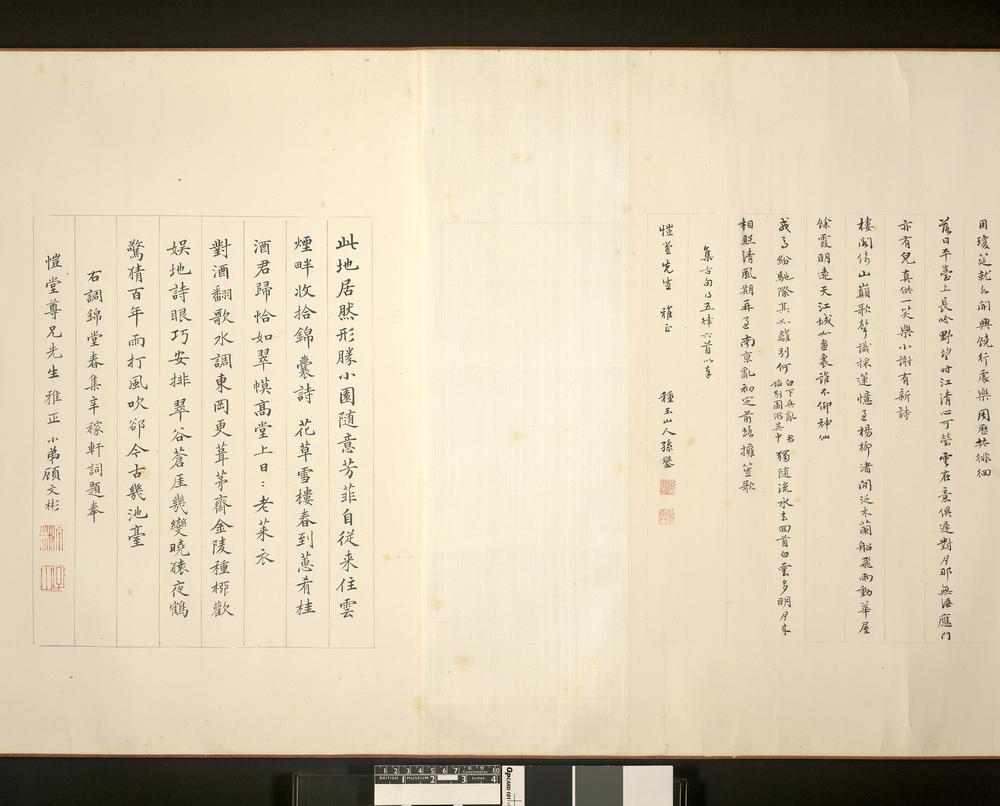 用瓊筵就水開興饒行處樂因歷共徘徊
落日平臺上長吟野望時江清心可瑩雲在意俱遲對月那無酒應門
亦有兒真供一笑樂小謝有新詩
樓閣倚山巔歌聲識採蓮憶至楊柳渚閒泛木蘭船飛雨動華屋
餘霞明遠天江城如畫裏誰不仰神仙
戎馬紛馳際其如離別何 白下兵亂君始別園游吳中 獨隨流水去回首白雲多明月來
相照清風期再至南京亂初定前路擁笙歌
集古句得五律六首以奉
愷堂先生 雅正
種玉山人孫鋆
此地居然形勝小園隨意芳菲自從来住雲
煙畔收拾錦囊詩 花草雪樓春到蔥肴桂
酒君歸恰如翠幙髙堂上日〻老萊衣
對酒翻歌水調東岡更葺茅齋金陵種栁歡
娛地詩眼巧安排 翠谷蒼崖幾變曉猿夜鶴
驚猜百年雨打風吹郤今古幾池臺
右調錦堂春集辛稼軒詞題奉
愷堂尊兄先生 雅正 小弟顧文彬
BRITISH MUSEUM
Centimetres
Inches